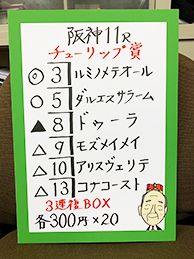 阪神11R
チューリップ賞
◎ 3 ルミノメテオール
○ 5 ダルエスサラーム
▲ 8 ドゥーラ
△ 9 モズメイメイ
△ 10 アリスヴェリテ
△ 13 コナコースト
3連複BOX
各300円×20